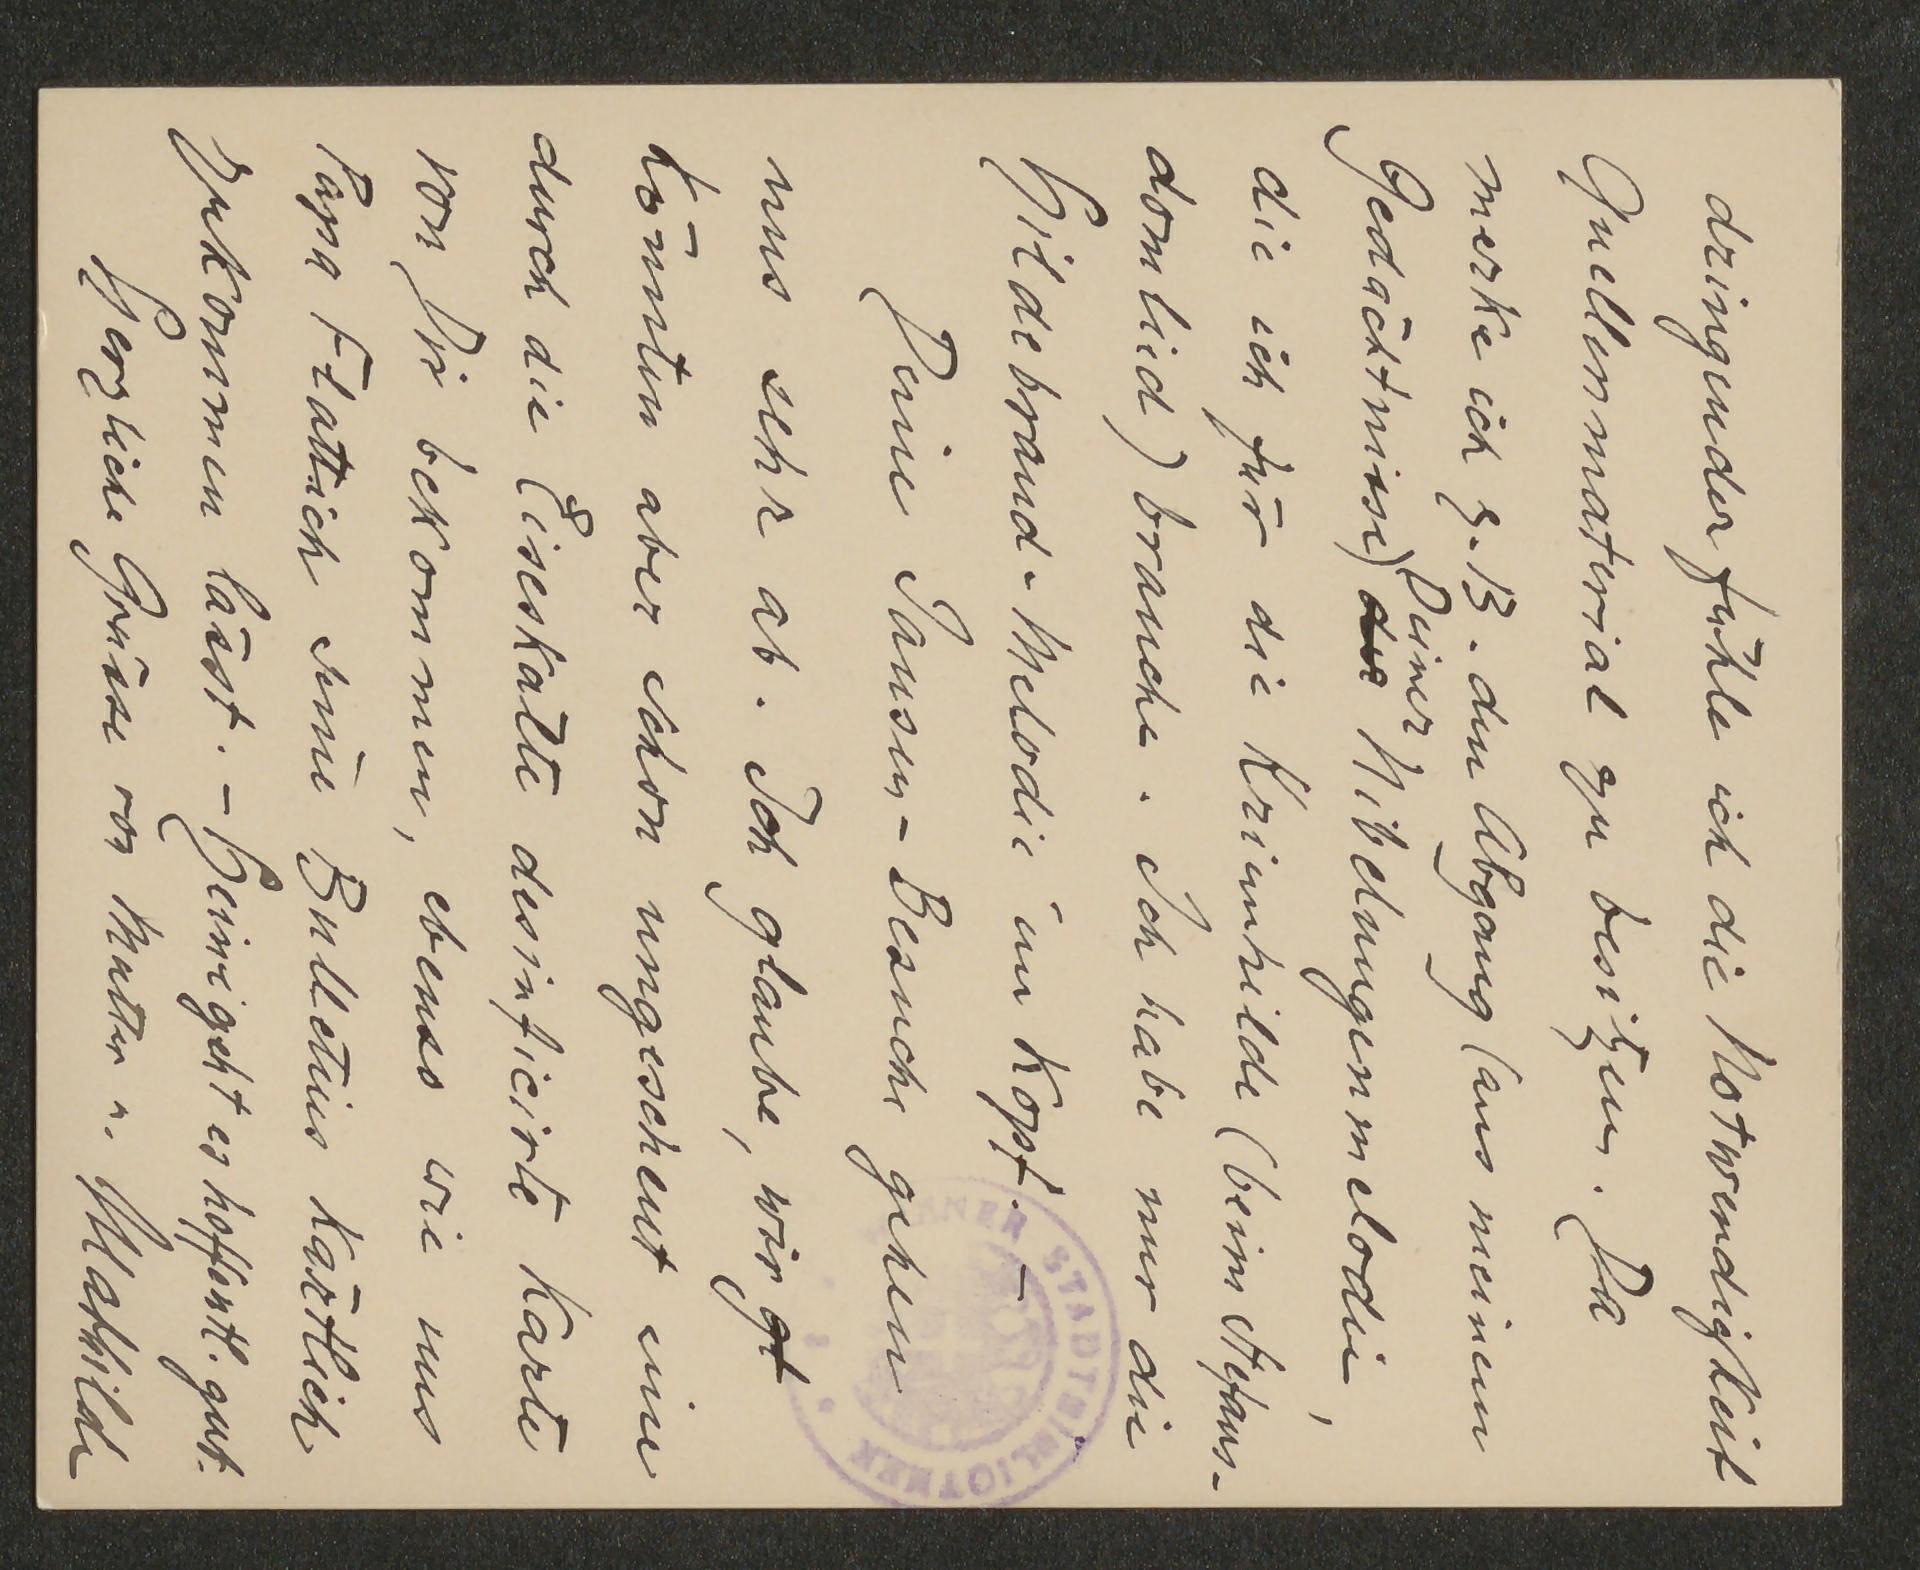 dringender fühle ich die Notwendigkeit
Quellenmaterial zu besitzen. Da
merke ich z. B. den Abgang (aus meinem
Gedächtnise) die Deiner Nibelungenmelodie,
die ich für die Kriemhilde (beim Stefans-
domlied) brauche. Ich habe nur die
Hildebrand-Melodie im Kopf. –
Deine Jausen-Besuche gehen
uns sehr ab. Ich glaube, wir gt
könnten aber schon ungescheut eine
durch die Eiseskälte desinficirte Karte
von Dir bekommen, ebenso wie uns
Papa Flattich seine Bulletins kärtlich
zukommen lässt. – Heini geht es hoffentl. gut.
Herzliche Grüsse von Mutter u. Mathilde
WIENER STADTBIBLIOTHEK